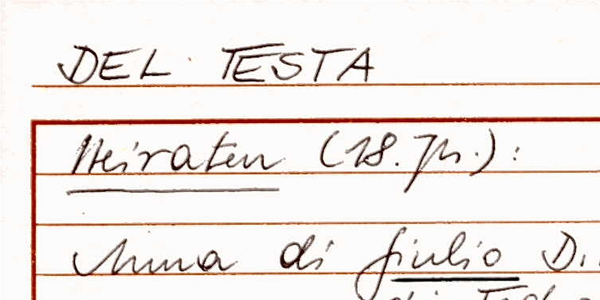 DEL TESTA
Heiraten (18. Jh.):
Anna di Giulio D.
di